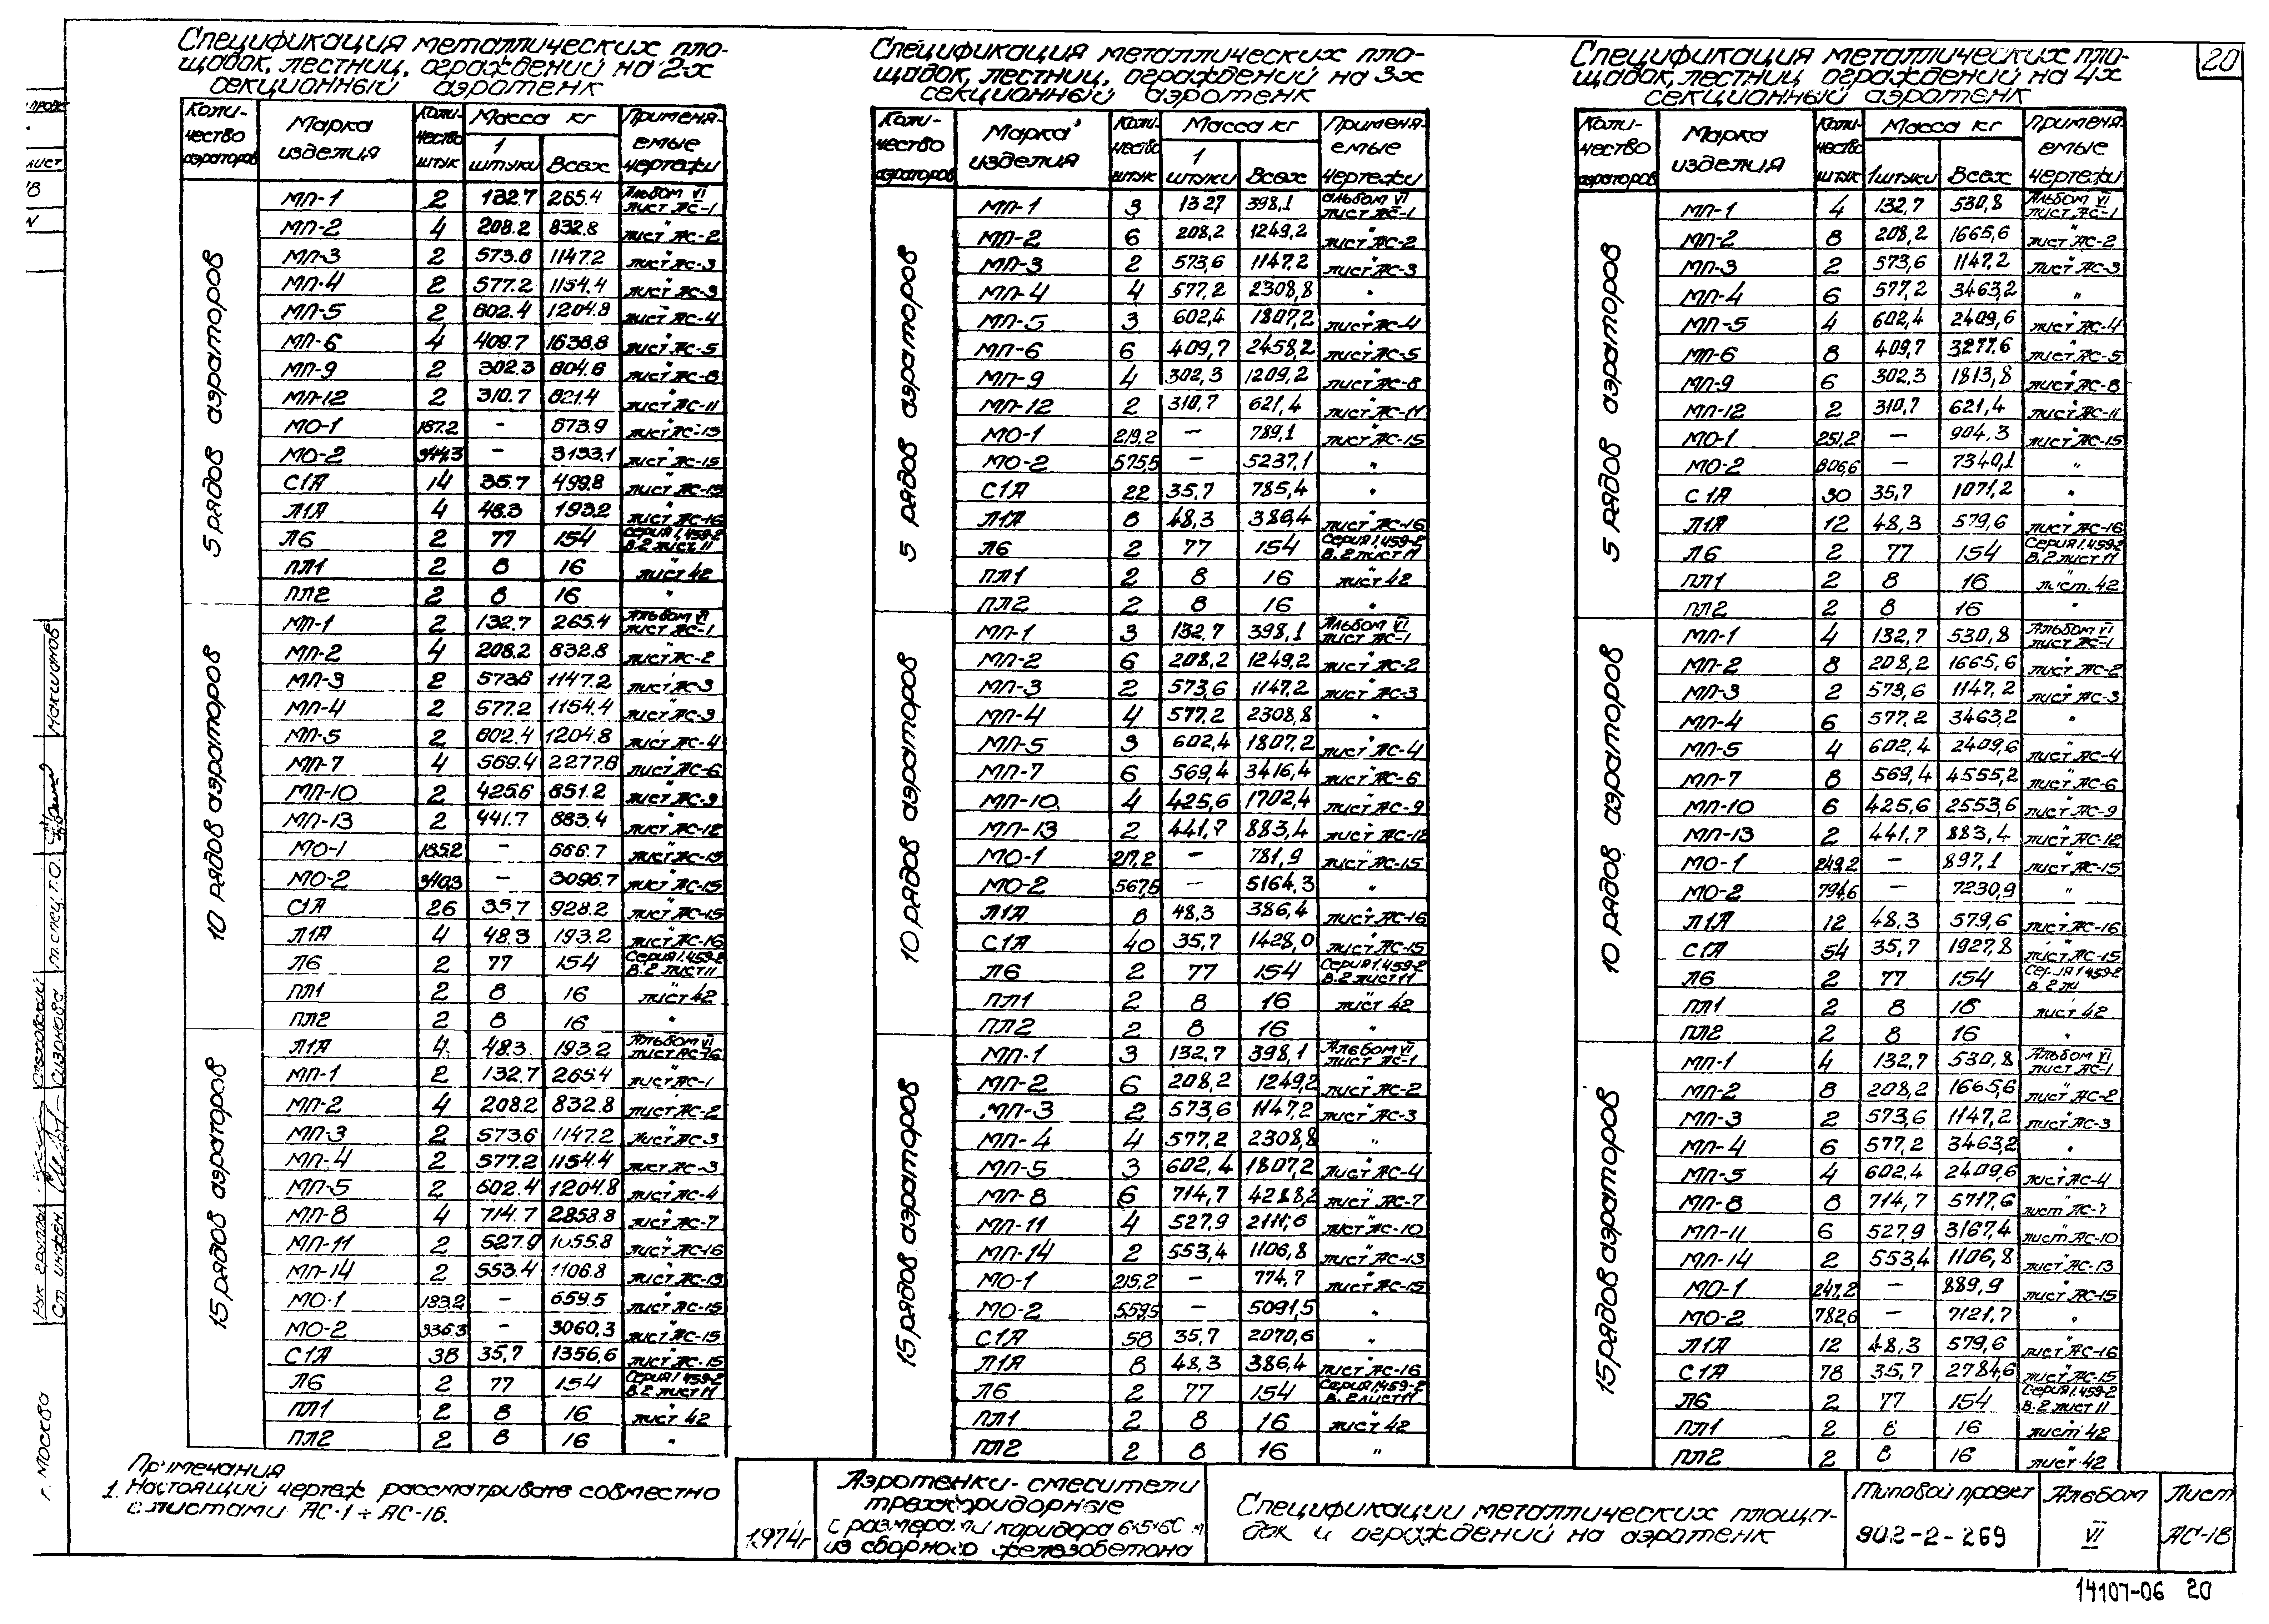 20
Спецификация металлических пло-
щадок, лестниц, ограждений на 2-х
секционный аэротенк
Коли-чество аэраторов Марка изделия Коли-чество штук Масса кг 1 штуки Всех Применя-емые чертежи
5 рядов аэраторов
МП-1 2 132.7 265.4 Альбом VI лист АС-1
МП-2 4 208.2 832.8 лист АС-2
МП-3 2 573.6 1147.2 лист АС-3
МП-4 2 577.2 1154.4 лист АС-3
МП-5 2 602.4 1204.8 лист АС-4
МП-6 4 409.7 1638.8 лист АС-5
МП-9 2 302.3 604.6 лист АС-8
МП-12 2 310.7 621.4 лист АС-11
МО-1 187.2 – 673.9 лист АС-15
МО-2 344.3 – 3133.1 лист АС-15
С1А 14 35.7 499.8 лист АС-15
Л1А 4 48.3 193.2 лист АС-16
Л6 2 77 154 Серия 1.459-2 В.2 лист 11
ПЛ1 2 8 16 лист 42
ПЛ2 2 8 16 "
10 рядов аэраторов
МП-1 2 132.7 265.4 Альбом VI лист АС-1
МП-2 4 208.2 832.8 лист АС-2
МП-3 2 573.6 1147.2 лист АС-3
МП-4 2 577.2 1154.4 лист АС-3
МП-5 2 602.4 1204.8 лист АС-4
МП-7 4 569.4 2277.6 лист АС-6
МП-10 2 425.6 851.2 лист АС-9
МП-13 2 441.7 883.4 лист АС-12
МО-1 185.2 – 666.7 лист АС-15
МО-2 340.3 – 3096.7 лист АС-15
С1А 26 35.7 928.2 лист АС-15
Л1А 4 48.3 193.2 лист АС-16
Л6 2 77 154 Серия 1.459-2 В.2 лист 11
ПЛ1 2 8 16 лист 42
ПЛ2 2 8 16 "
15 рядов аэраторов
Л1А 4 48.3 193.2 Альбом VI лист АС-16
МП-1 2 132.7 265.4 лист АС-1
МП-2 4 208.2 832.8 лист АС-2
МП-3 2 573.6 1147.2 лист АС-3
МП-4 2 577.2 1154.4 лист АС-3
МП-5 2 602.4 1204.8 лист АС-4
МП-8 4 714.7 2858.8 лист АС-7
МП-11 2 527.9 1055.8 лист АС-16
МП-14 2 553.4 1106.8 лист АС-13
МО-1 183.2 – 659.5 лист АС-15
МО-2 336.3 – 3060.3 лист АС-15
С1А 38 35,7 1356,6 лист АС-15
Л6 2 77 154 Серия 1.459-2 В.2 лист 11
ПЛ1 2 8 16 лист 42
ПЛ2 2 8 16 "
Спецификация металлических пло-
щадок, лестниц, ограждений на 3х
секционный аэротенк
Коли-чество аэраторов Марка изделия Коли-чество штук Масса кг 1 штуки Всех Применя-емые чертежи
5 рядов аэраторов
МП-1 3 132,7 398,1 Альбом VI лист АС-1
МП-2 6 208,2 1249,2 лист АС-2
МП-3 2 573,6 1147,2 лист АС-3
МП-4 4 577,2 2308,8 "
МП-5 3 602,4 1807,2 лист АС-4
МП-6 6 409,7 2458,2 лист АС-5
МП-9 4 302,3 1209,2 лист АС-8
МП-12 2 310,7 621,4 лист АС-11
МО-1 219,2 – 789,1 лист АС-15
МО-2 575,5 – 5237,1 "
С1А 22 35,7 785,4 "
Л1А 8 48,3 386,4 лист АС-16
Л6 2 77 154 Серия 1.459-2 В.2 лист 11
ПЛ1 2 8 16 лист 42
ПЛ2 2 8 16 "
10 рядов аэраторов
МП-1 3 132,7 398,1 Альбом VI лист АС-1
МП-2 6 208,2 1249,2 лист АС-2
МП-3 2 573,6 1147,2 лист АС-3
МП-4 4 577,2 2308,8 "
МП-5 3 602,4 1807,2 лист АС-4
МП-7 6 569,4 3416,4 лист АС-6
МП-10 4 425,6 1702,4 лист АС-9
МП-13 2 441,7 883,4 лист АС-12
МО-1 217,2 – 781,9 лист АС-15
МО-2 567,5 – 5164,3 "
Л1А 8 48,3 386,4 лист АС-16
С1А 40 35,7 1428,0 лист АС-15
Л6 2 77 154 Серия 1.459-2 В.2 лист 11
ПЛ1 2 8 16 лист 42
ПЛ2 2 8 16 "
15 рядов аэраторов
МП-1 3 132,7 398,1 Альбом VI лист АС-1
МП-2 6 208,2 1249,2 лист АС-2
МП-3 2 573,6 1147,2 лист АС-3
МП-4 4 577,2 2308,8 "
МП-5 3 602,4 1807,2 лист АС-4
МП-8 6 714,7 4288,2 лист АС-7
МП-11 4 527,9 2111,6 лист АС-10
МП-14 2 553,4 1106,8 лист АС-13
МО-1 215,2 – 774,7 лист АС-15
МО-2 559,5 – 5091,5 "
С1А 58 35,7 2070,6 "
Л1А 8 48,3 386,4 лист АС-16
Л6 2 77 154 Серия 1.459-2 В.2 лист 11
ПЛ1 2 8 16 лист 42
ПЛ2 2 8 16 "
Спецификация металлических пло-
щадок, лестниц ограждений на 4х
секционный аэротенк
Коли-чество аэраторов Марка изделия Коли-чество штук Масса кг 1 штуки Всех Применя-емые чертежи
5 рядов аэраторов
МП-1 4 132,7 530,8 Альбом VI лист АС-1
МП-2 8 208,2 1665,6 лист АС-2
МП-3 2 573,6 1147,2 лист АС-3
МП-4 6 577,2 3463,2 "
МП-5 4 602,4 2409,6 лист АС-4
МП-6 8 409,7 3277,6 лист АС-5
МП-9 6 302,3 1813,8 лист АС-8
МП-12 2 310,7 621,4 лист АС-11
МО-1 251,2 – 904,3 лист АС-15
МО-2 806,6 – 7340,1 "
С1А 30 35,7 1071,2 "
Л1А 12 48,3 579,6 лист АС-16
Л6 2 77 154 Серия 1.459-2 В.2 лист 11
ПЛ1 2 8 16 лист. 42
ПЛ2 2 8 16 "
10 рядов аэраторов
МП-1 4 132,7 530,8 Альбом VI лист АС-1
МП-2 8 208,2 1665,6 лист АС-2
МП-3 2 573,6 1147,2 лист АС-3
МП-4 6 577,2 3463,2 "
МП-5 4 602,4 2409,6 лист АС-4
МП-7 8 569,4 4555,2 лист АС-6
МП-10 6 425,6 2553,6 лист АС-9
МП-13 2 441,7 883,4 лист АС-12
МО-1 249,2 – 897,1 лист АС-15
МО-2 794,6 – 7230,9 "
Л1А 12 48,3 579,6 лист АС-16
С1А 54 35,7 1927,8 лист АС-15
Л6 2 77 154 Серия 1.459-2 В.2 ли
ПЛ1 2 8 16 лист 42
ПЛ2 2 8 16 "
15 рядов аэраторов
МП-1 4 132,7 530,8 Альбом VI лист АС-1
МП-2 8 208,2 1665,6 лист АС-2
МП-3 2 573,6 1147,2 лист АС-3
МП-4 6 577,2 3463,2 "
МП-5 4 602,4 2409,6 лист АС-4
МП-8 8 714,7 5717,6 лист АС-7
МП-11 6 527,9 3167,4 лист АС-10
МП-14 2 553,4 1106,8 лист АС-13
МО-1 247,2 – 889,9 лист АС-15
МО-2 782,6 – 7121,7 "
Л1А 12 48,3 579,6 лист АС-16
С1А 78 35,7 2784,6 лист АС-15
Л6 2 77 154 Серия 1.459-2 В.2 лист 11
ПЛ1 2 8 16 лист 42
ПЛ2 2 8 16 лист 42
Примечания
1. Настоящий чертеж рассматривать совместно
с листами АС-1 ÷ АС-16.
1974г
Аэротенки-смесители
трехкоридорные
с размерами коридора 6×5×60 м
из сборного железобетона
Спецификации металлических площа-
док и ограждений на аэротенк
Типовой проект
902-2-269
Альбом
VI
Лист
АС-18
14107-06 20
г. Москва
Рук. группы Островский
Ст. инжен. Сизонова
гл. спец. Т.О. Макшанов
лист